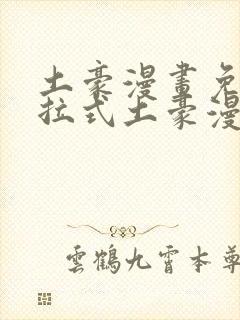 土豪漫畫免
拉式土豪漫
雲鶴九霄本尊